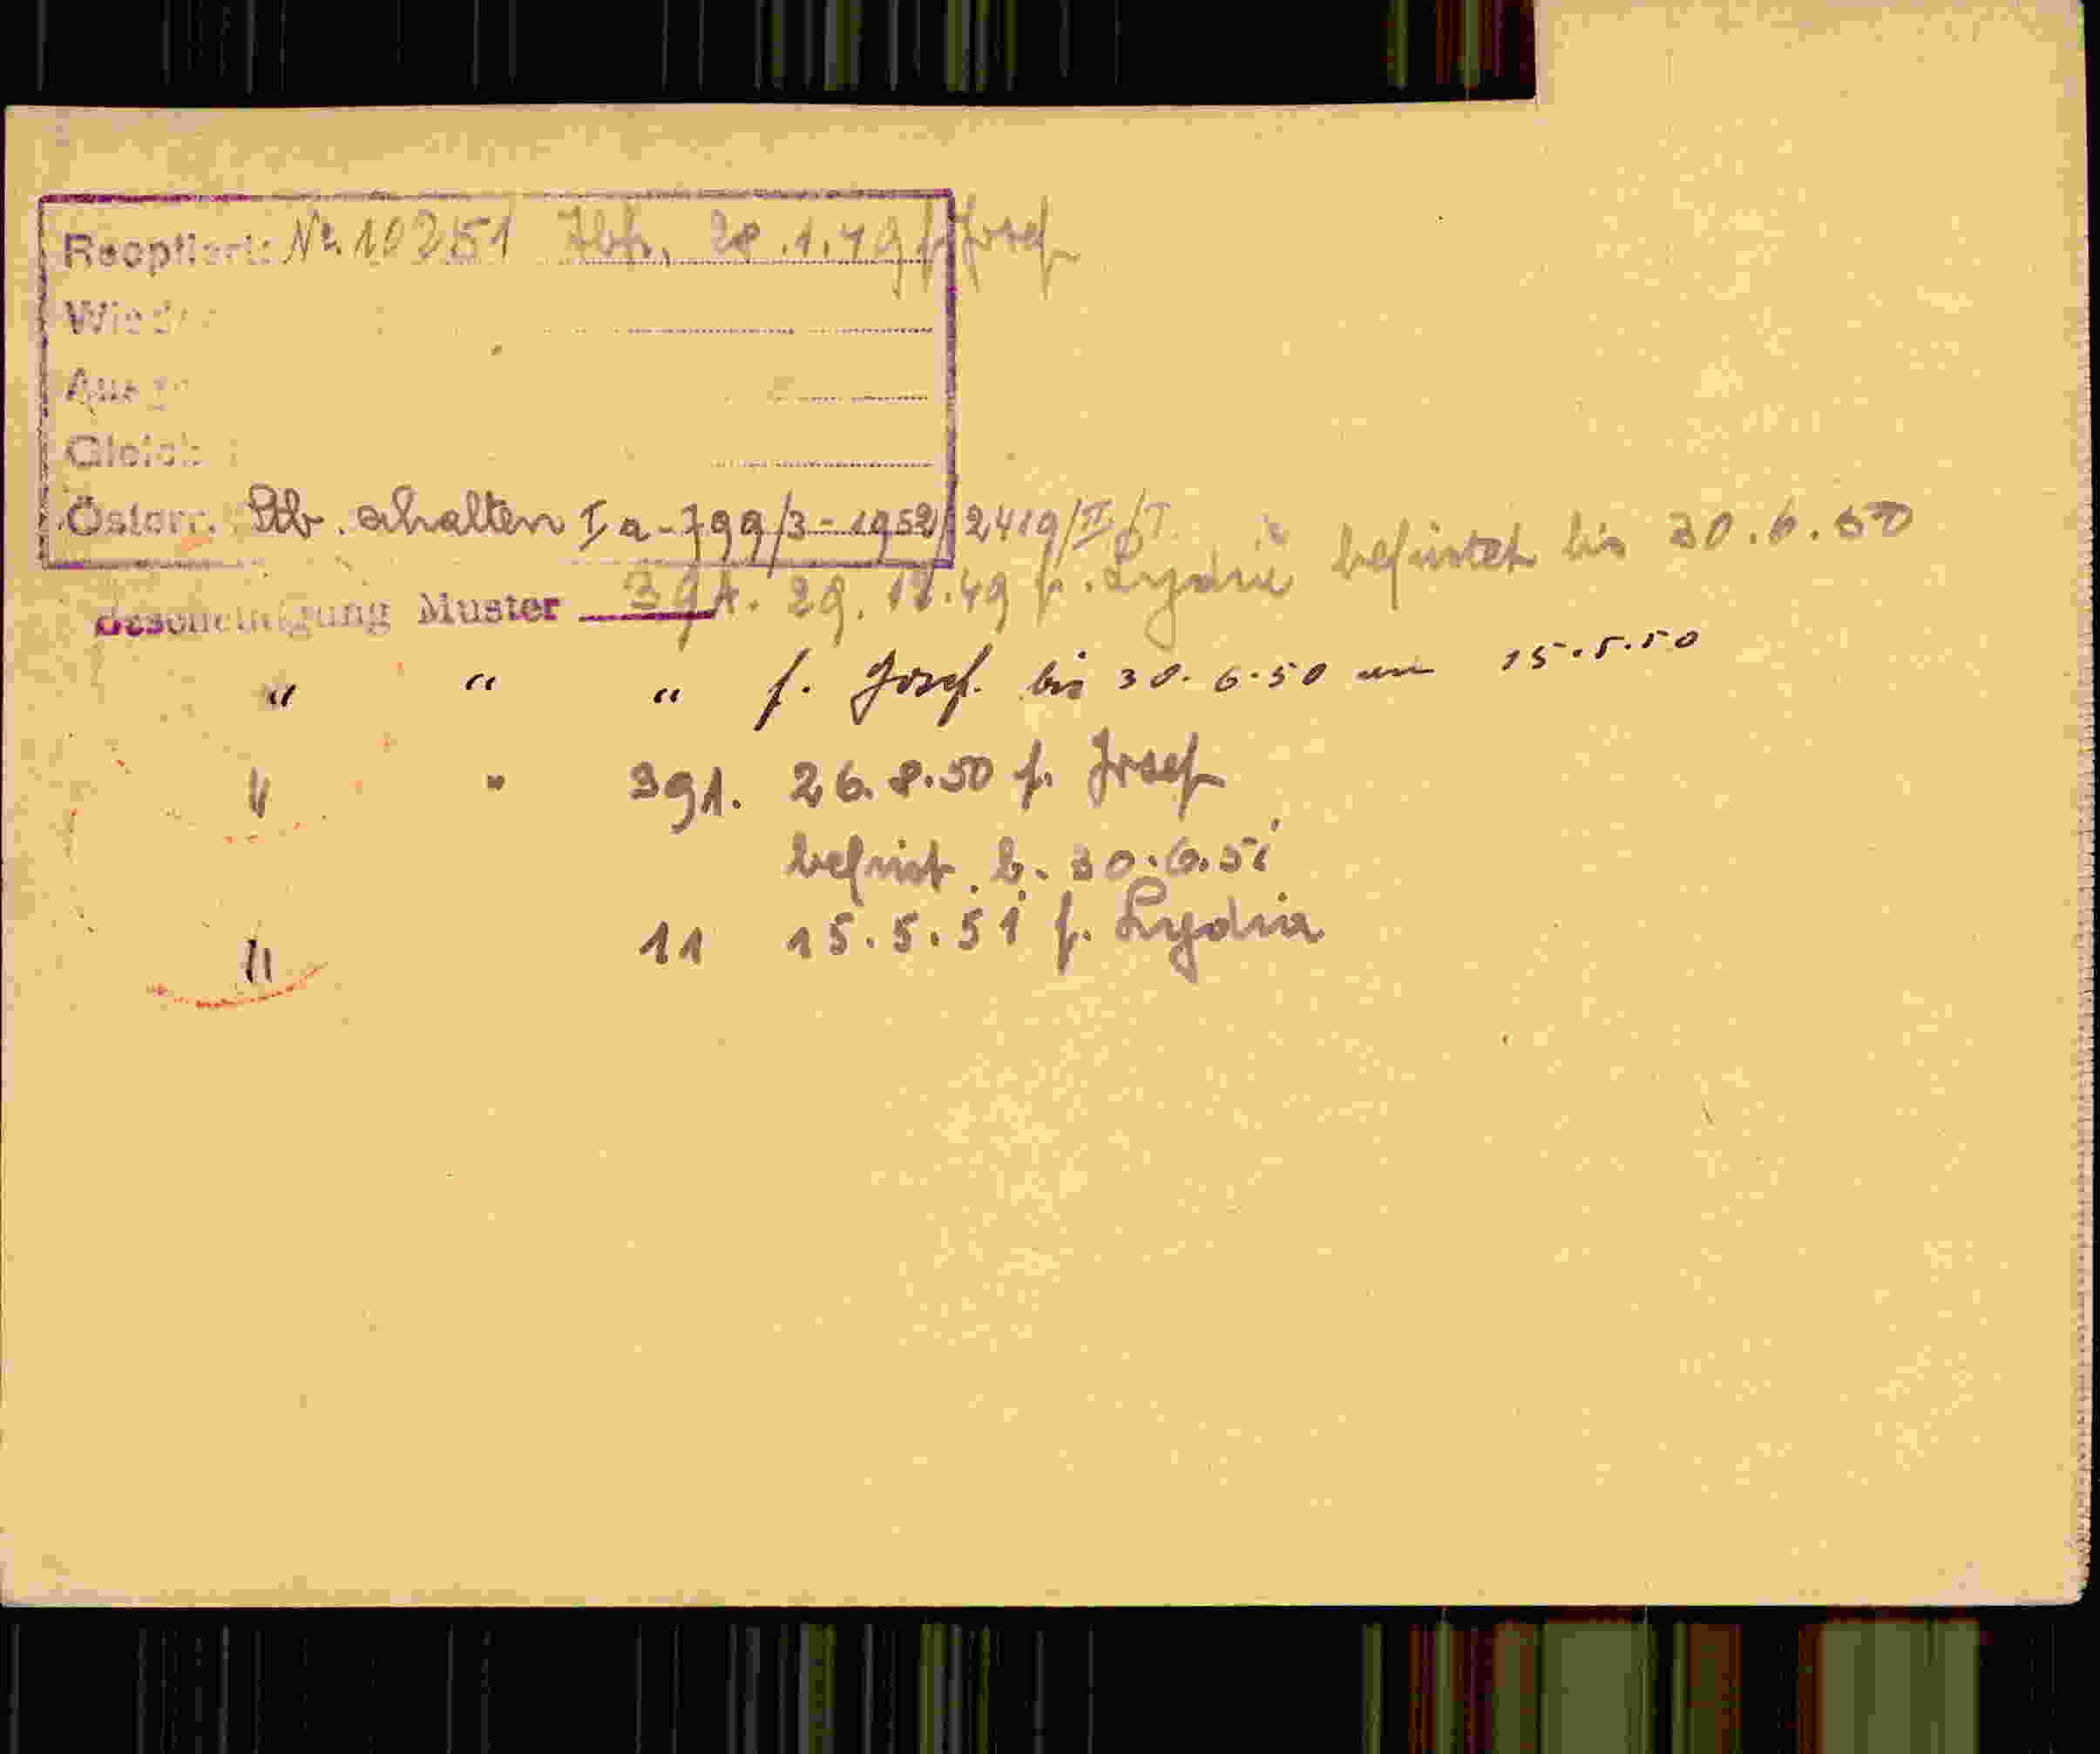 Reoptiert: No. 10251 Ibk, 28.1.49 f. Josef
Österr. Stb. erhalten I a-799/3-1952/2419/II/ST
Bescheinigung Muster 391. 29.12.49 f. Lydia befristet bis 30.6.50
" " " f. Josef. bis 30.6.50 am 15.5.50
" " 391. 26.8.50 f. Josef
befrist. b. 30.6.51
" 11 15.5.51 f. Lydia